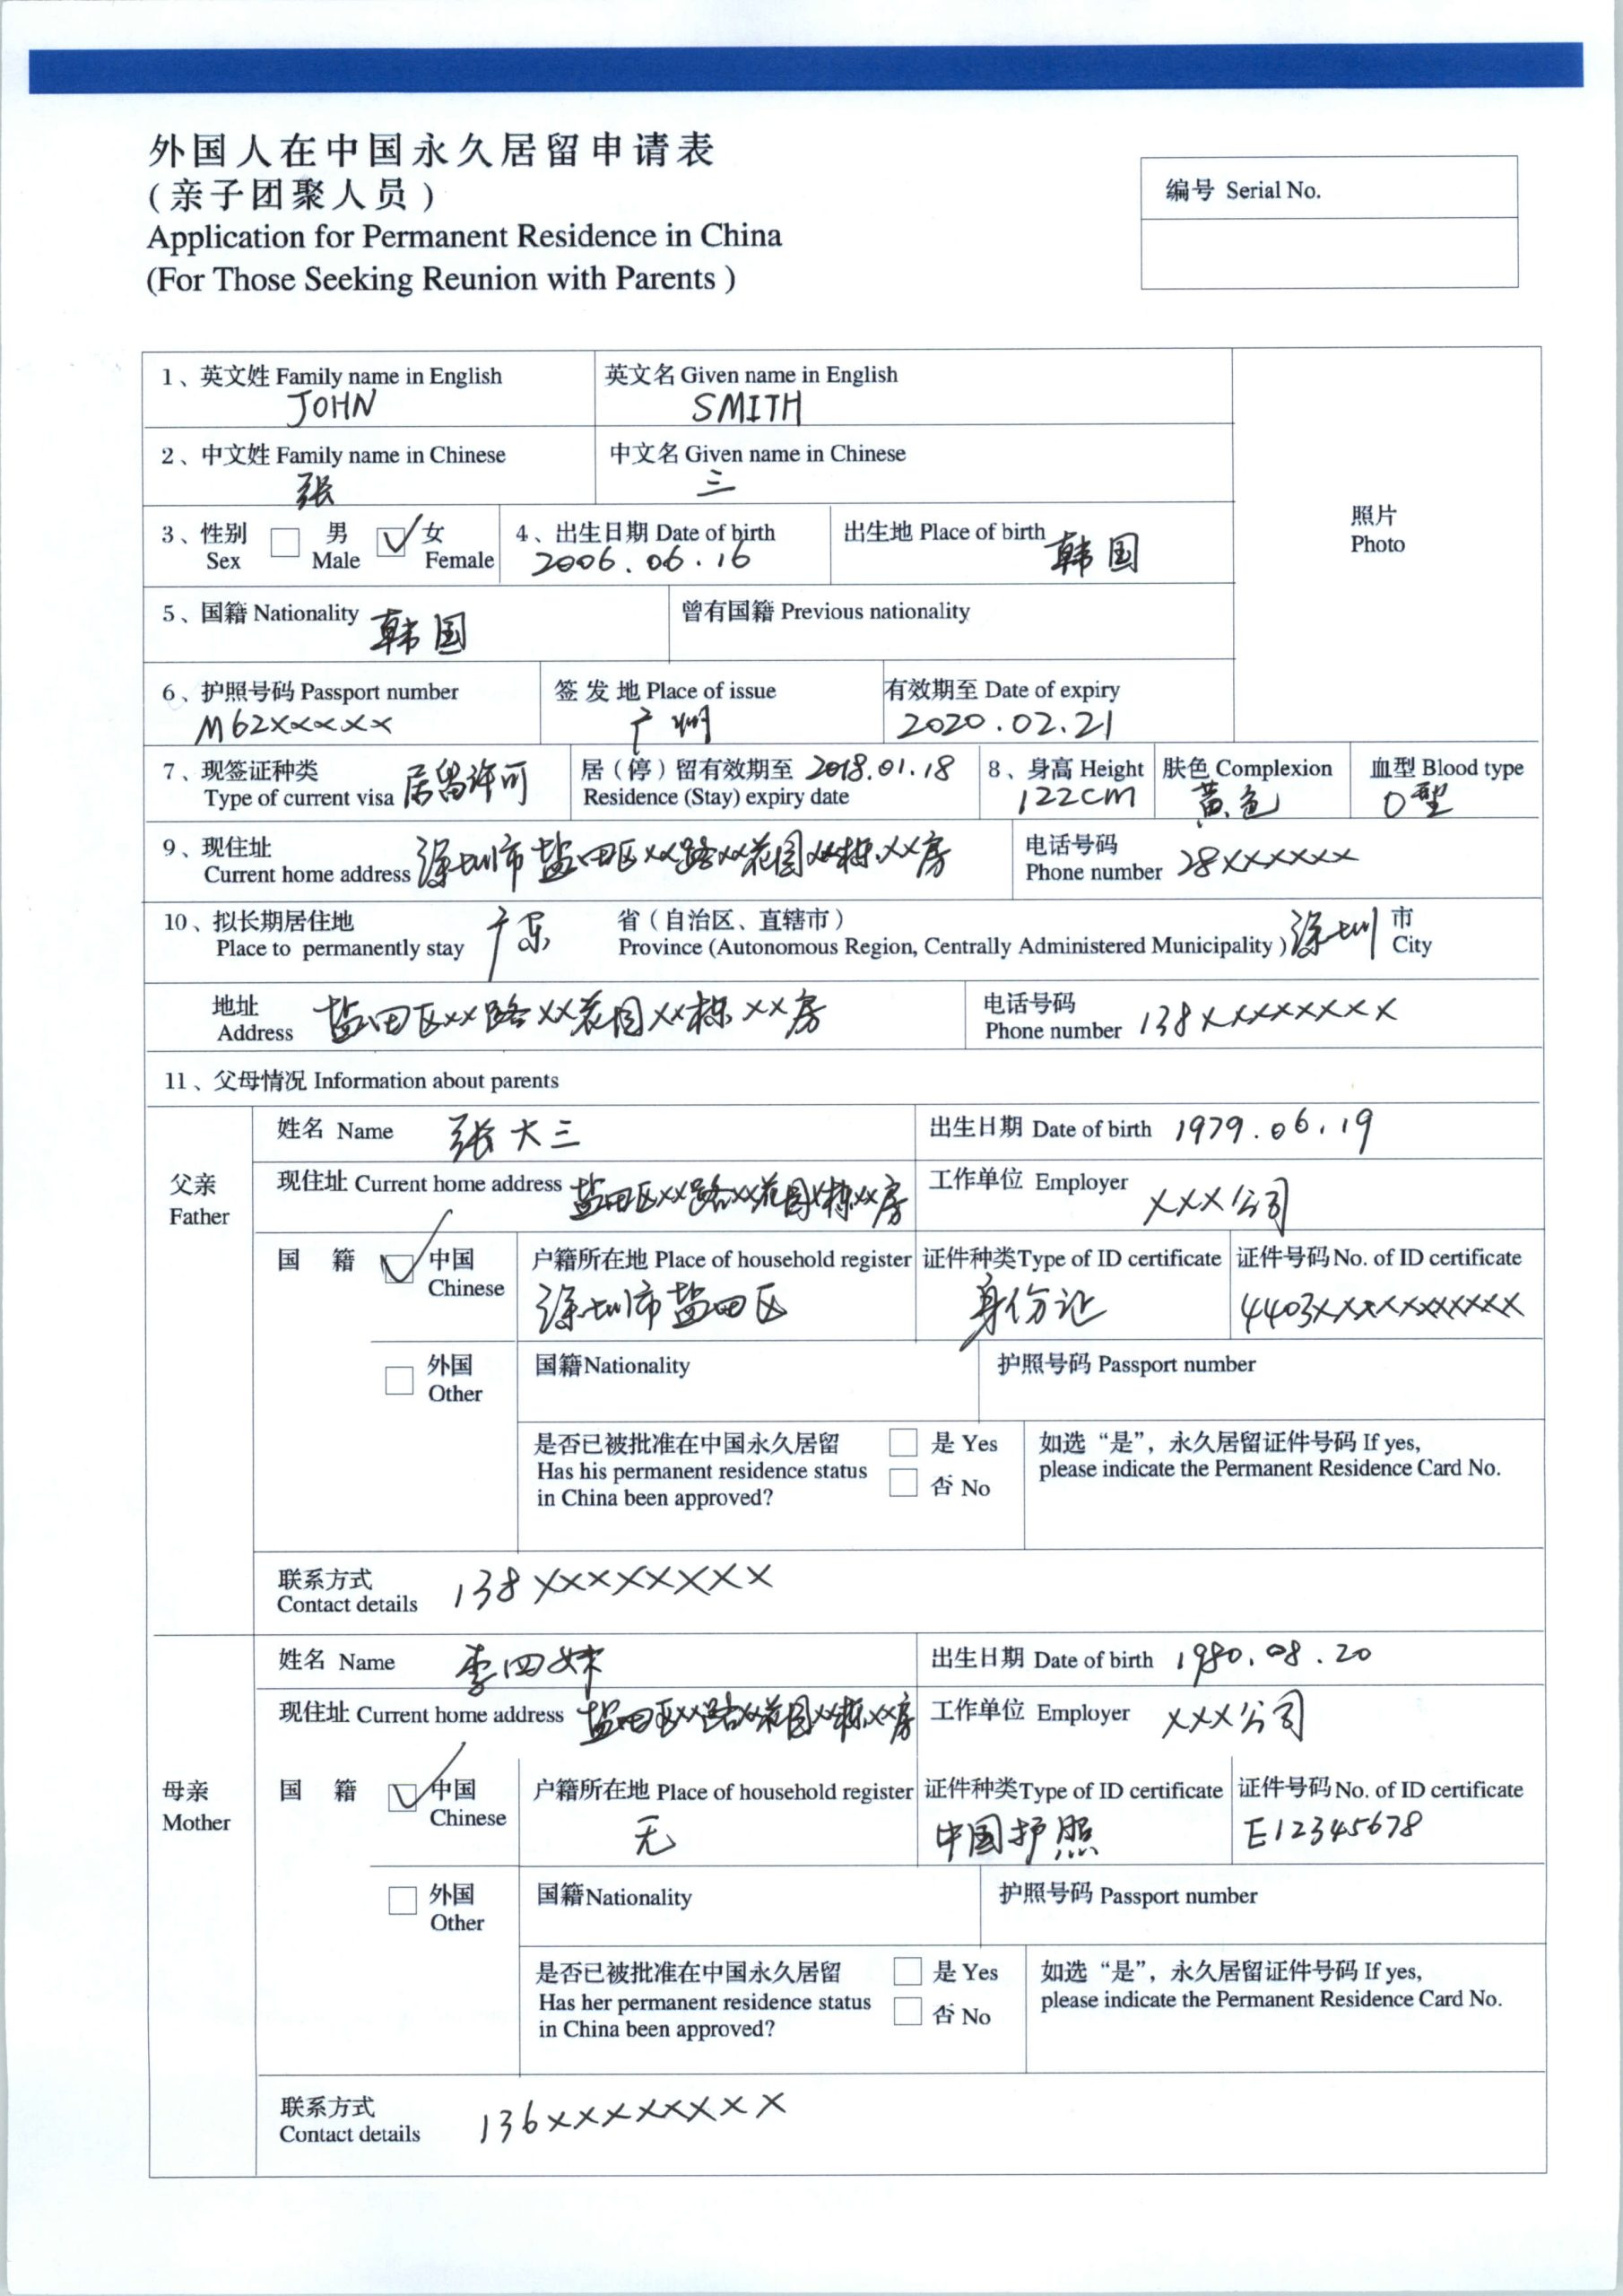 外国人在中国永久居留申请表
(亲子团聚人员)
Application for Permanent Residence in China
(For Those Seeking Reunion with Parents )
编号 Serial No.
1、英文姓 Family name in English 英文名 Given name in English
JOHN SMITH
2、中文姓 Family name in Chinese 中文名 Given name in Chinese
张 三
照片
Photo
3、性别 男 女 4、出生日期 Date of birth 出生地 Place of birth 韩国
Sex Male Female 2006.06.16
5、国籍 Nationality 韩国 曾有国籍 Previous nationality
6、护照号码 Passport number 签发地 Place of issue 有效期至 Date of expiry
M62XXXXX 广州 2020.02.21
7、现签证种类 居留许可 居(停)留有效期至 2018.01.18 8、身高 Height 肤色 Complexion 血型 Blood type
Type of current visa Residence (Stay) expiry date 122cm 黄色 O型
9、现住址 深圳市盐田区XX路XX花园XX栋XX房 电话号码
Current home address Phone number 28XXXXXX
10、拟长期居住地 广东 省(自治区、直辖市) 深圳 市
Place to permanently stay Province (Autonomous Region, Centrally Administered Municipality ) City
地址 盐田区XX路XX花园XX栋XX房 电话号码
Address Phone number 138XXXXXXXX
11、父母情况 Information about parents
父亲
Father
姓名 Name 张大三 出生日期 Date of birth 1979.06.19
现住址 Current home address 盐田区XX路XX花园X栋XX房 工作单位 Employer XXX公司
国 籍 中国 户籍所在地 Place of household register 证件种类Type of ID certificate 证件号码No. of ID certificate
Chinese 深圳市盐田区 身份证 4403XXXXXXXXXXX
外国 国籍Nationality 护照号码 Passport number
Other
是否已被批准在中国永久居留 是 Yes 如选“是”，永久居留证件号码 If yes,
Has his permanent residence status please indicate the Permanent Residence Card No.
in China been approved? 否 No
联系方式 138XXXXXXXX
Contact details
母亲
Mother
姓名 Name 李四妹 出生日期 Date of birth 1980.08.20
现住址 Current home address 盐田区XX路XX花园XX栋XX房 工作单位 Employer XXX公司
国 籍 中国 户籍所在地 Place of household register 证件种类Type of ID certificate 证件号码No. of ID certificate
Chinese 无 中国护照 E12345678
外国 国籍Nationality 护照号码 Passport number
Other
是否已被批准在中国永久居留 是 Yes 如选“是”，永久居留证件号码 If yes,
Has her permanent residence status please indicate the Permanent Residence Card No.
in China been approved? 否 No
联系方式 136XXXXXXXX
Contact details